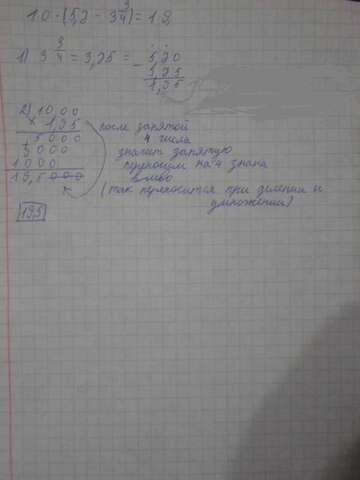 10·(5,2 - 3 3/4) = 19,
1) 3 3/4 = 3,25 = - 5,20
3,25
1,95
2) 10,00
× 1,95
5000
9000
1000
19,5000
после запятой
4 числа
значит запятую
двигаем на 4 знака
влево
(так переносится при делении и
умножении)
19,5